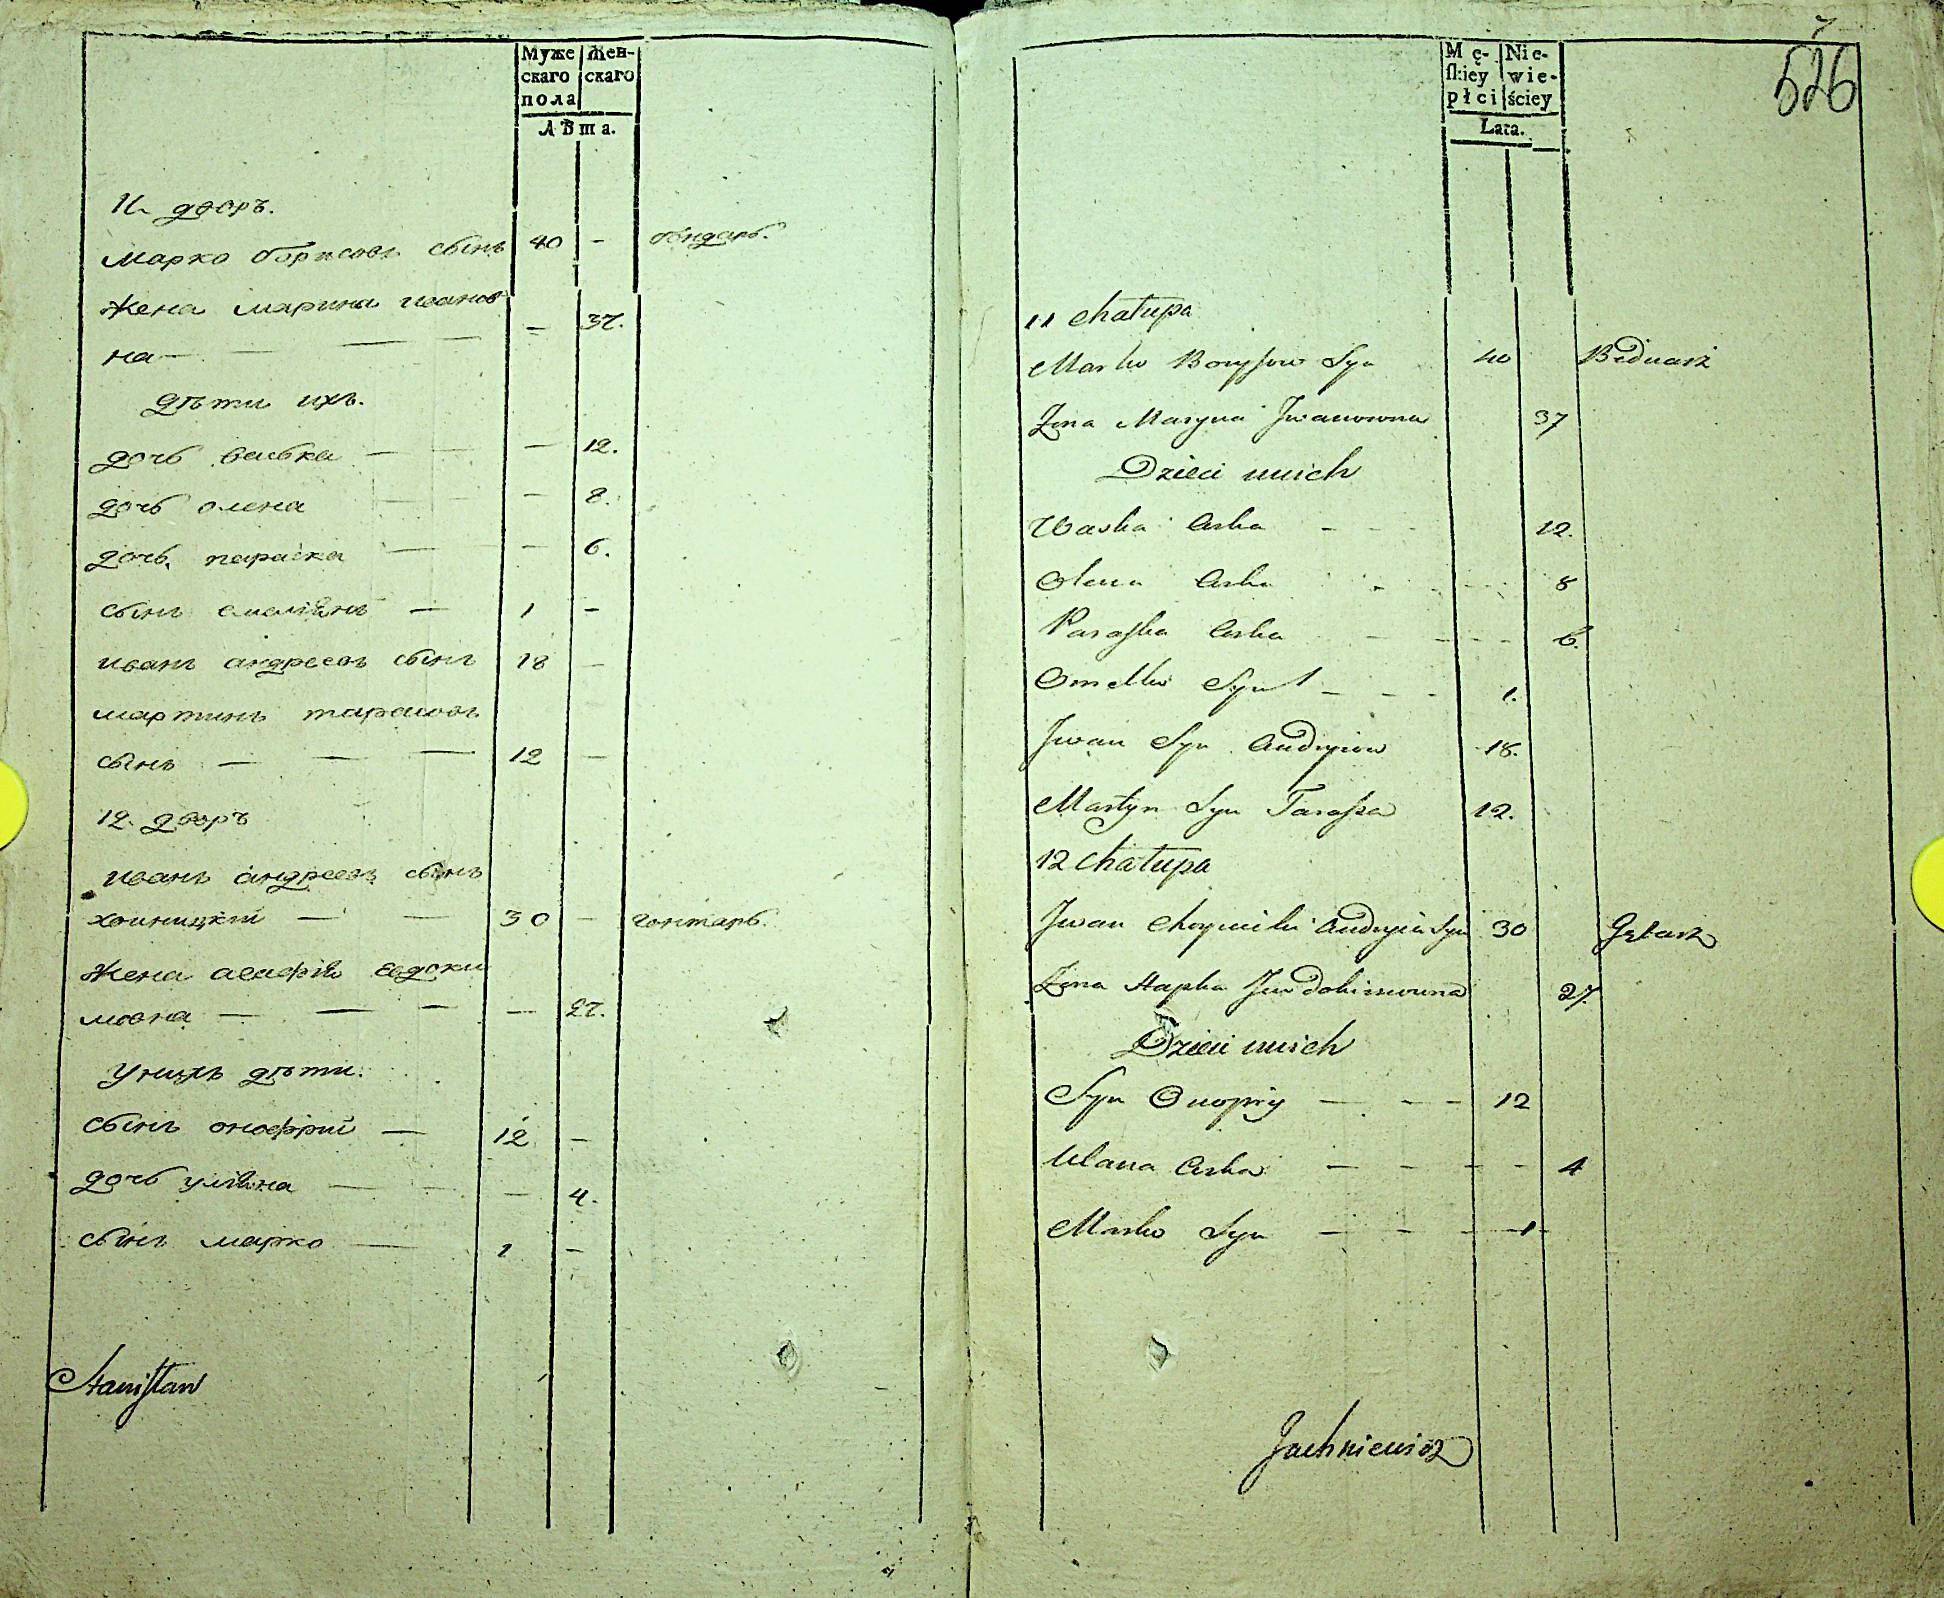 Муже
скаго
пола
Жен-
скаго
Лѣта.
11. дворъ.
марко борисовъ сынъ 40 - бондарь.
жена марина иванов
на — — — — — 37.
дѣти ихъ.
дочь васька — — — 12.
дочь олена — — — 8.
дочь параска — — 6.
сынъ емелиянъ — 1 -
иванъ андреевъ сынъ 18 —
мартинъ тарасовъ
сынъ — — — 12 —
12. дворъ
иванъ андреевъ сынъ
хоиницкій — — 30 — гонтарь.
жена агафія евдоки
мовна — — — — 27.
Унихъ дѣти.
сынъ онофрій — 12 —
дочь уляна — — — 4.
сынъ марко — 1 —
Stanisław
526
Mę-
skiey
płci
Nie-
wie-
ściey
Lata.
11 Chałupa
Marko Borysow Syn 40 Bednarz
Żona Maryna Jwanowna 37
Dzieci unich
Waska Curka - - - 12.
Olena Curka - - - 8
Paraska Curka - - - 6.
Omelko Syn 1 - - - 1.
Jwan Syn Andryiow 18.
Martyn Syn Tarassa 12.
12 Chałupa
Jwan Choynicki Andryiów Syn 30 Gętarz
Żona Hapka Jewdokimowna 27
Dzieci unich
Syn Onopry — - - 12
Ulana Curka — - - - 4
Marko Syn — - - - 1 -
Jachniewicz